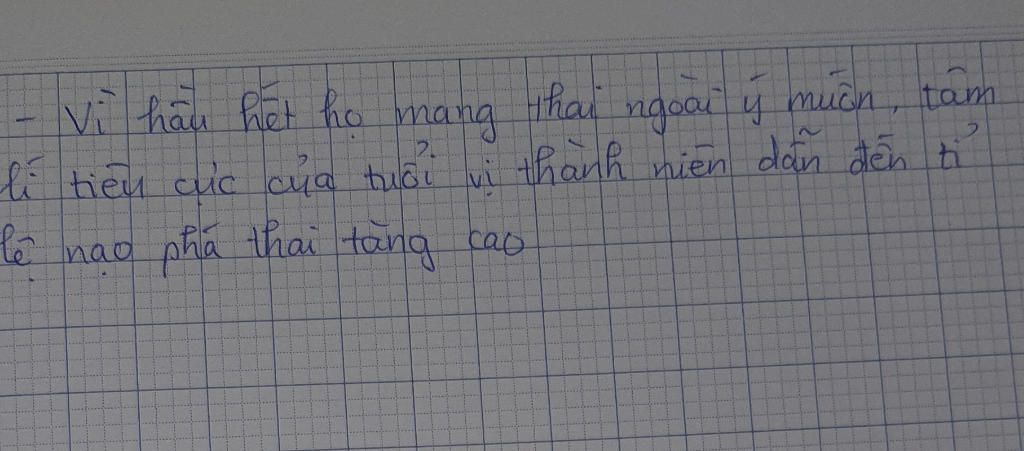 - Vì hầu hết họ mang thai ngoài ý muốn, tâm
lí tiêu cực của tuổi vị thành niên dẫn đến tỉ
lệ nạo phá thai tăng cao